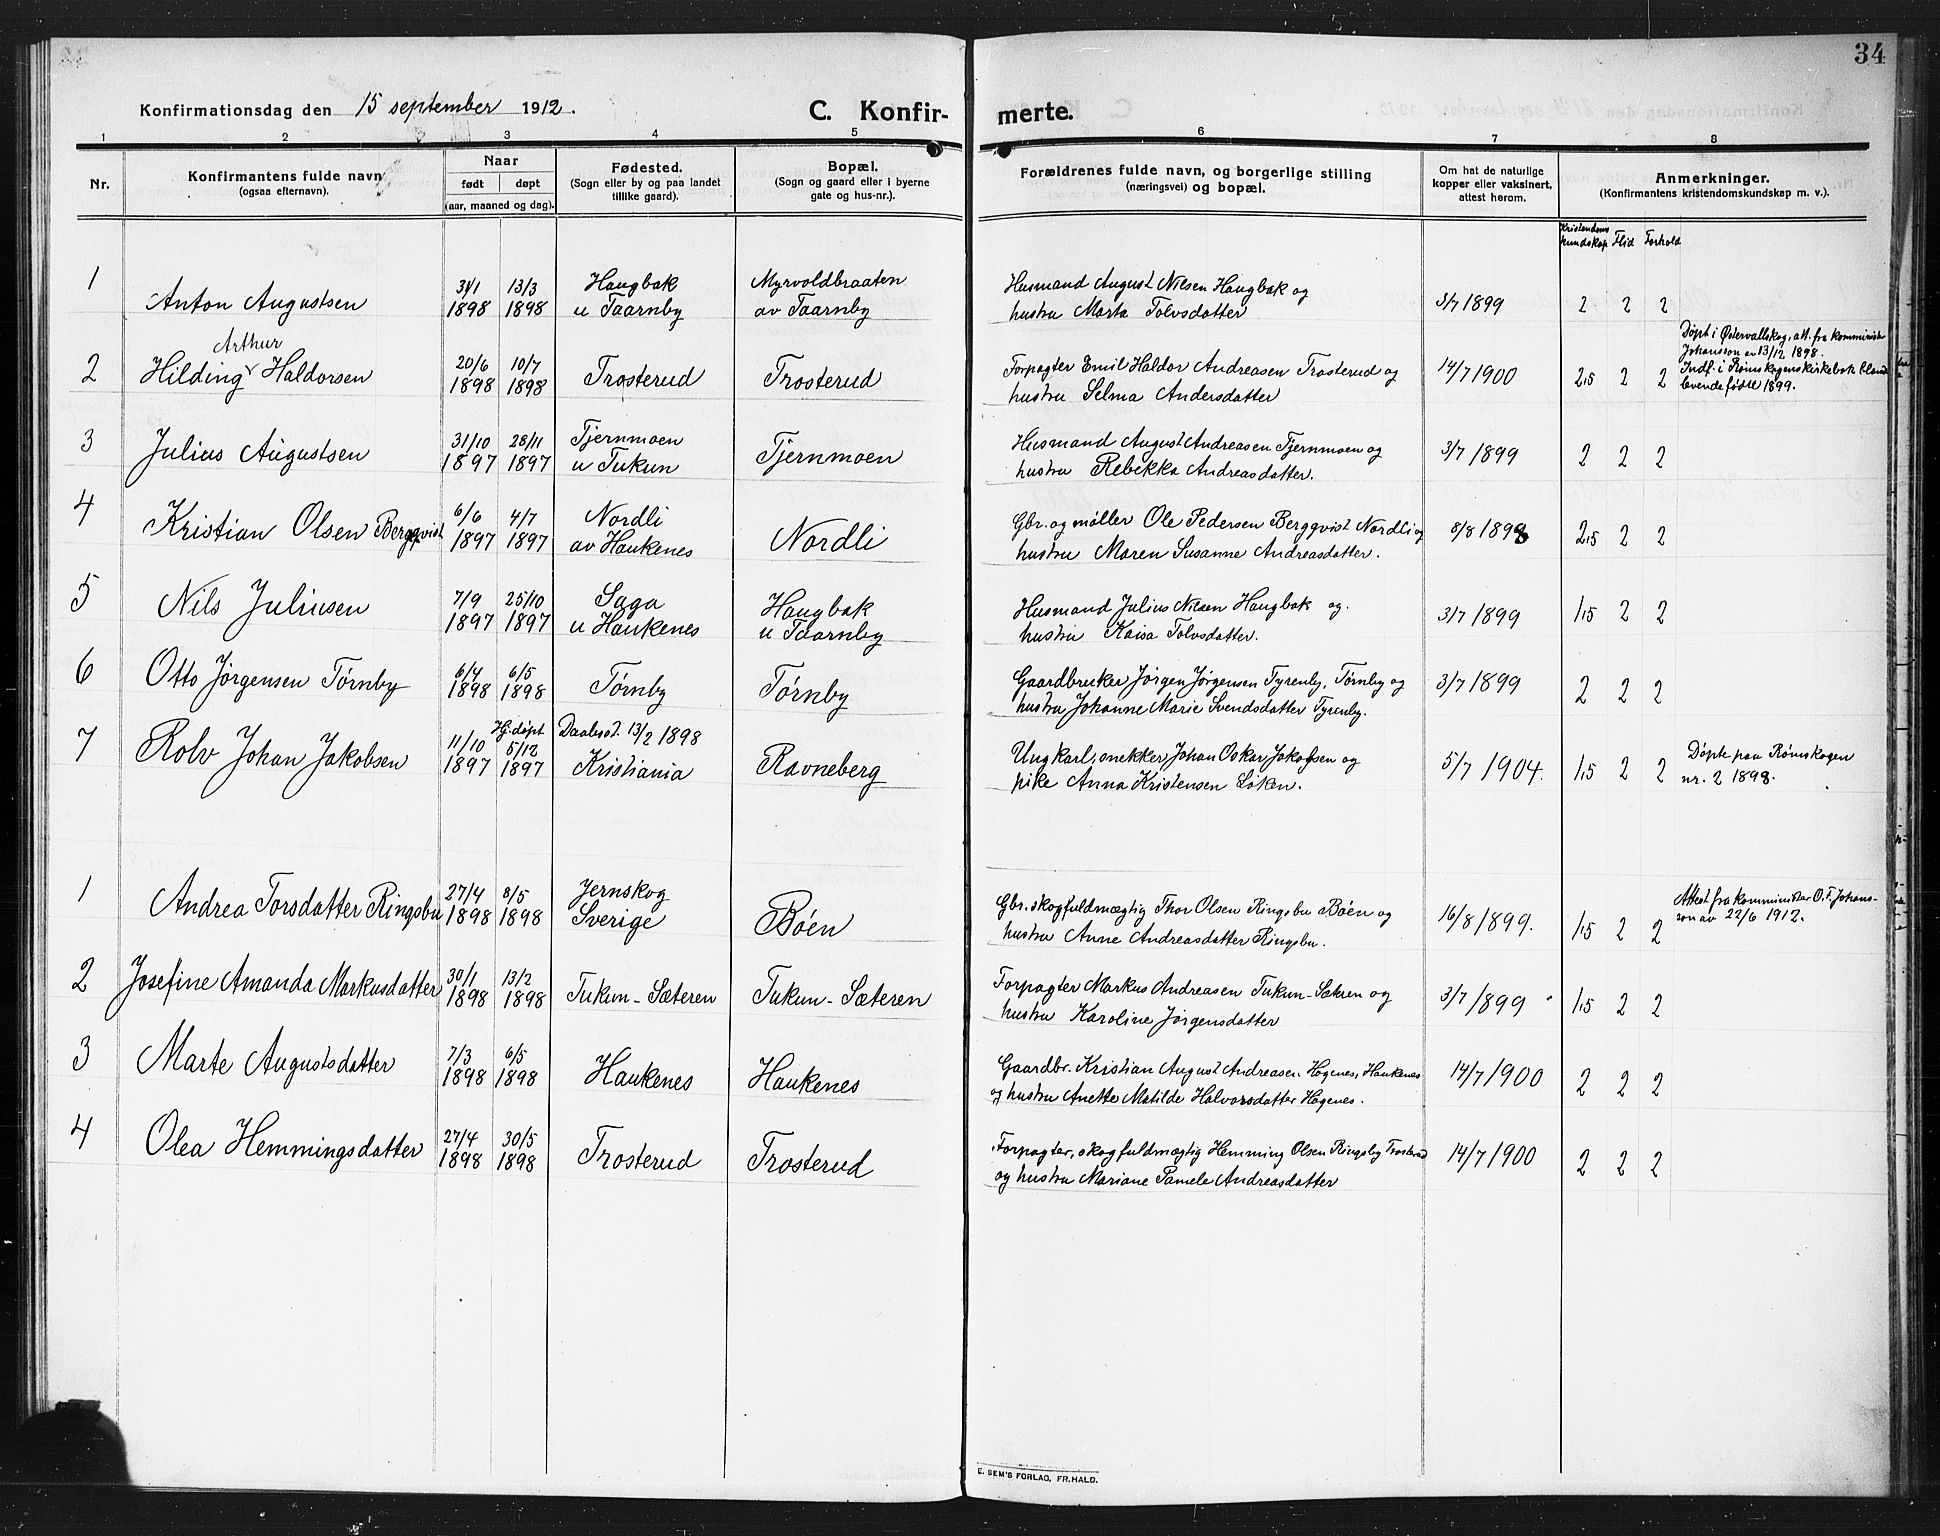 34
Konfirmationsdag den 15 september 1912.
C. Konfirmerte.
1 2 3 4 5 6 7 8
Nr.
Konfirmantens fulde navn
(ogsaa efternavn).
Naar
født døpt
(aar, maaned og dag).
Fødested.
(Sogn eller by og paa landet
tillike gaard).
Bopæl.
(Sogn og gaard eller i byerne
gate og hus-nr.).
Forældrenes fulde navn, og borgerlige stilling
(næringsvei) og bopæl.
Om hat de naturlige
kopper eller vaksinert,
attest herom.
Anmerkninger.
(Konfirmantens kristendomskundskap m. v.).
Kristendoms
kundskap Flid Forhold
1 Anton Augustsen
31/1 1898 13/3 1898
Haugbak
u Taarnby
Myrvoldbraaten
av Taarnby
Husmand August Nilsen Haugbak og
hustru Marta Tolvsdatter
3/7 1899 2 2 2
2 Hilding Arthur Haldorsen
20/6 1898 10/7 1898
Trosterud
Trosterud
Forpagter Emil Haldor Andreasen Trosterud og
hustru Selma Andersdatter
14/7 1900 2,5 2 2
Døpt i Østervallskog, att. fra kommunister
Johansson av 13/12 1898.
Indf. i Rømskogens kirkebok bland
levende fødte 1899.
3 Julius Augustsen
31/10 1897 28/11 1897
Tjernmoen
u Tukun
Tjernmoen
Husmand August Andreasen Tjernmoen og
hustru Rebekka Andreasdatter.
3/7 1899 2 2 2
4 Kristian Olsen Bergqvist
6/6 1897 4/7 1897
Nordli
av Haukenes
Nordli
Gbr. og møller Ole Pedersen Bergqvist Nordli og
hustru Maren Susanne Andreasdatter.
8/8 1898 2,5 2 2
5 Nils Juliusen
7/9 1897 25/10 1897
Saga
u Haukenes
Haugbak
u Taarnby
Husmand Julius Nilsen Haugbak og
hustru Kaisa Tolvsdatter.
3/7 1899 1,5 2 2
6 Otto Jørgensen Tørnby
6/4 1898 6/5 1898
Tørnby
Tørnby
Gaardbruker Jørgen Jørgensen Tyrenby, Tørnby og
hustru Johanne Marie Svendsdatter Tyrenby.
3/7 1899 2 2 2
7 Rolv Johan Jakobsen
11/10 1897 Hj. døpt 5/12 1897
Daabsst. 13/2 1898
Kristiania
Ravneberg
Ungkarl, snekker Johan Oskar Jakobsen og
pike Anna Kristensen Løken.
5/7 1904. 1,5 2 2
Døpte paa Rømskogen
nr. 2 1898.
1 Andrea Torsdatter Ringsbu
27/4 1898 8/5 1898
Jernskog
Sverige
Bøen
Gbr. skogfuldmægtig Thor Olsen Ringsbu Bøen og
hustru Anne Andreasdatter Ringsbu.
16/8 1899. 1,5 2 2
Attest fra komminister O. F. Johans-
son av 22/6 1912.
2 Josefine Amanda Markusdatter
30/1 1898 13/2 1898
Tukun-Sæteren
Tukun-Sæteren
Forpagter Markus Andreasen Tukun-Sæteren og
hustru Karoline Jørgensdatter
3/7 1899 1,5 2 2
3 Marte Augustsdatter
7/3 1898 6/5 1898
Haukenes
Haukenes
Gaardbr. Kristian August Andreasen Høgenes, Haukenes
og hustru Anette Matilde Halvorsdatter Høgenes.
14/7 1900 2 2 2
4 Olea Hemmingsdatter
27/4 1898 30/5 1898
Trosterud
Trosterud
Forpagter, skogfuldmægtig Hemming Olsen Ringsby Trosterud
og hustru Mariane Pamele Andreasdatter
14/7 1900 2 2 2
E. SEM'S FORLAG, FR.HALD.